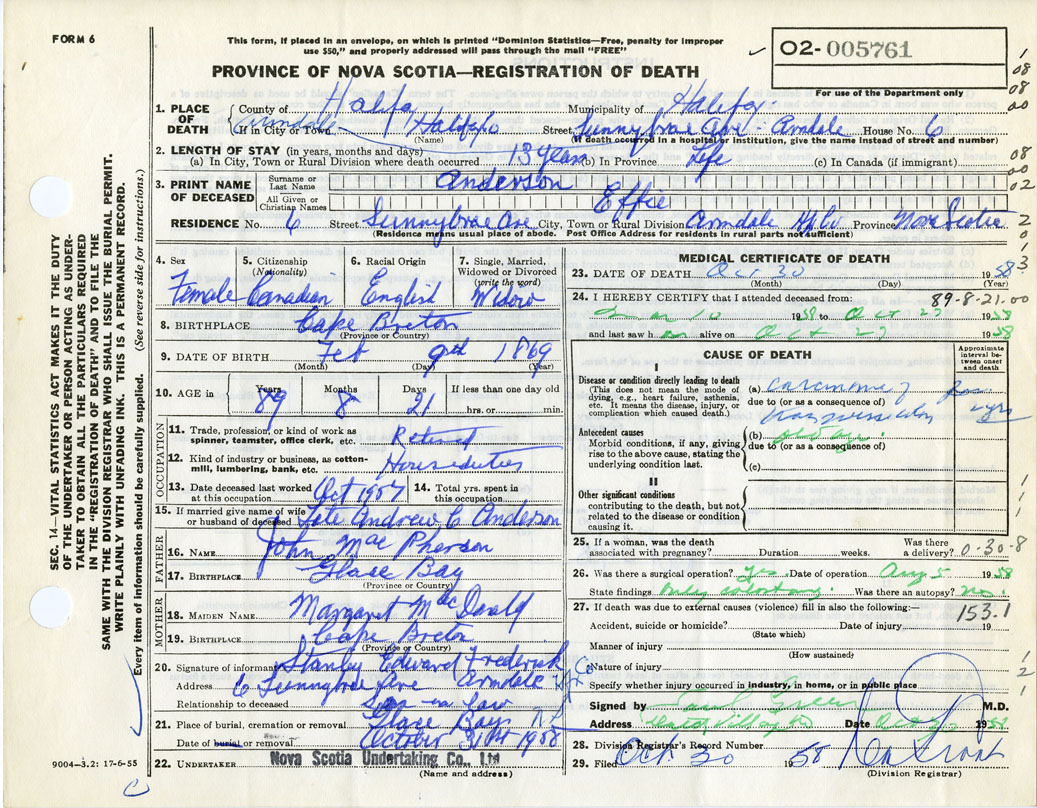 FORM 6
This form, if placed in an envelope, on which is printed "Dominion Statistics—Free, penalty for improper
use $50," and properly addressed will pass through the mail "FREE"
O2- 005761
For use of the Department only
PROVINCE OF NOVA SCOTIA—REGISTRATION OF DEATH
SEC. 14—VITAL STATISTICS ACT MAKES IT THE DUTY
OF THE UNDERTAKER OR PERSON ACTING AS UNDER-
TAKER TO OBTAIN ALL THE PARTICULARS REQUIRED
IN THE "REGISTRATION OF DEATH" AND TO FILE THE
SAME WITH THE DIVISION REGISTRAR WHO SHALL ISSUE THE BURIAL PERMIT.
WRITE PLAINLY WITH UNFADING INK. THIS IS A PERMANENT RECORD.
Every item of information should be carefully supplied. (See reverse side for instructions.)
1. PLACE OF DEATH County of Halifax Municipality of Halifax
If in City or Town Armdale Halifax Street Sunnybrae Ave - Armdale House No. 6
(Name) (If death occurred in a hospital or institution, give the name instead of street and number)
2. LENGTH OF STAY (in years, months and days)
(a) In City, Town or Rural Division where death occurred 13 years (b) In Province Life (c) In Canada (if immigrant)
3. PRINT NAME OF DECEASED Surname or Last Name Anderson
All Given or Christian Names Effie
RESIDENCE No. 6 Street Sunnybrae Ave City, Town or Rural Division Armdale Hfx Co Province Nova Scotia
(Residence means usual place of abode. Post Office Address for residents in rural parts not sufficient)
4. Sex Female
5. Citizenship (Nationality) Canadian
6. Racial Origin English
7. Single, Married, Widowed or Divorced (write the word) Widow
8. BIRTHPLACE Cape Breton
(Province or Country)
9. DATE OF BIRTH Feb 9th 1869
(Month) (Day) (Year)
10. AGE in Years 89 Months 8 Days 21 If less than one day old
hrs. or min.
OCCUPATION
11. Trade, profession, or kind of work as spinner, teamster, office clerk, etc. Retired
12. Kind of industry or business, as cotton-mill, lumbering, bank, etc. House duties
13. Date deceased last worked at this occupation Oct 1957 14. Total yrs. spent in this occupation
15. If married give name of wife or husband of deceased Late Andrew C Anderson
FATHER
16. NAME John MacPherson
17. BIRTHPLACE Glace Bay
(Province or Country)
MOTHER
18. MAIDEN NAME Margaret MacDonald
19. BIRTHPLACE Cape Breton
(Province or Country)
20. Signature of informant Stanley Edward Frederick
Address 6 Sunnybrae Ave Armdale Hfx Co
Relationship to deceased Son in law
21. Place of burial, cremation or removal Glace Bay N.S.
Date of burial or removal October 31st 1958
22. UNDERTAKER Nova Scotia Undertaking Co., Ltd
(Name and address)
9004-3.2: 17-6-55
MEDICAL CERTIFICATE OF DEATH
23. DATE OF DEATH Oct 30 1958
(Month) (Day) (Year)
24. I HEREBY CERTIFY that I attended deceased from: 89-8-21.00
10 1958 to Oct 27 1958
and last saw h alive on Oct 27 1958
CAUSE OF DEATH
Approximate interval between onset and death
I
Disease or condition directly leading to death
(This does not mean the mode of dying, e.g., heart failure, asthenia, etc. It means the disease, injury, or complication which caused death.)
(a) Carcinoma of
due to (or as a consequence of)
yrs
Antecedent causes
Morbid conditions, if any, giving rise to the above cause, stating the underlying condition last.
(b) old age
due to (or as a consequence of)
(c)
II
Other significant conditions
contributing to the death, but not related to the disease or condition causing it.
25. If a woman, was the death associated with pregnancy? Duration weeks. Was there a delivery? 0-30-8
26. Was there a surgical operation? yes Date of operation Aug 5 1958
State findings only colostomy Was there an autopsy? no
27. If death was due to external causes (violence) fill in also the following:—
153.1
Accident, suicide or homicide? Date of injury 19
(State which)
Manner of injury
(How sustained)
Nature of injury
Specify whether injury occurred in industry, in home, or in public place
Signed by M.D.
Address Date 1958
28. Division Registrar's Record Number
29. Filed Oct. 30 1958
(Division Registrar)